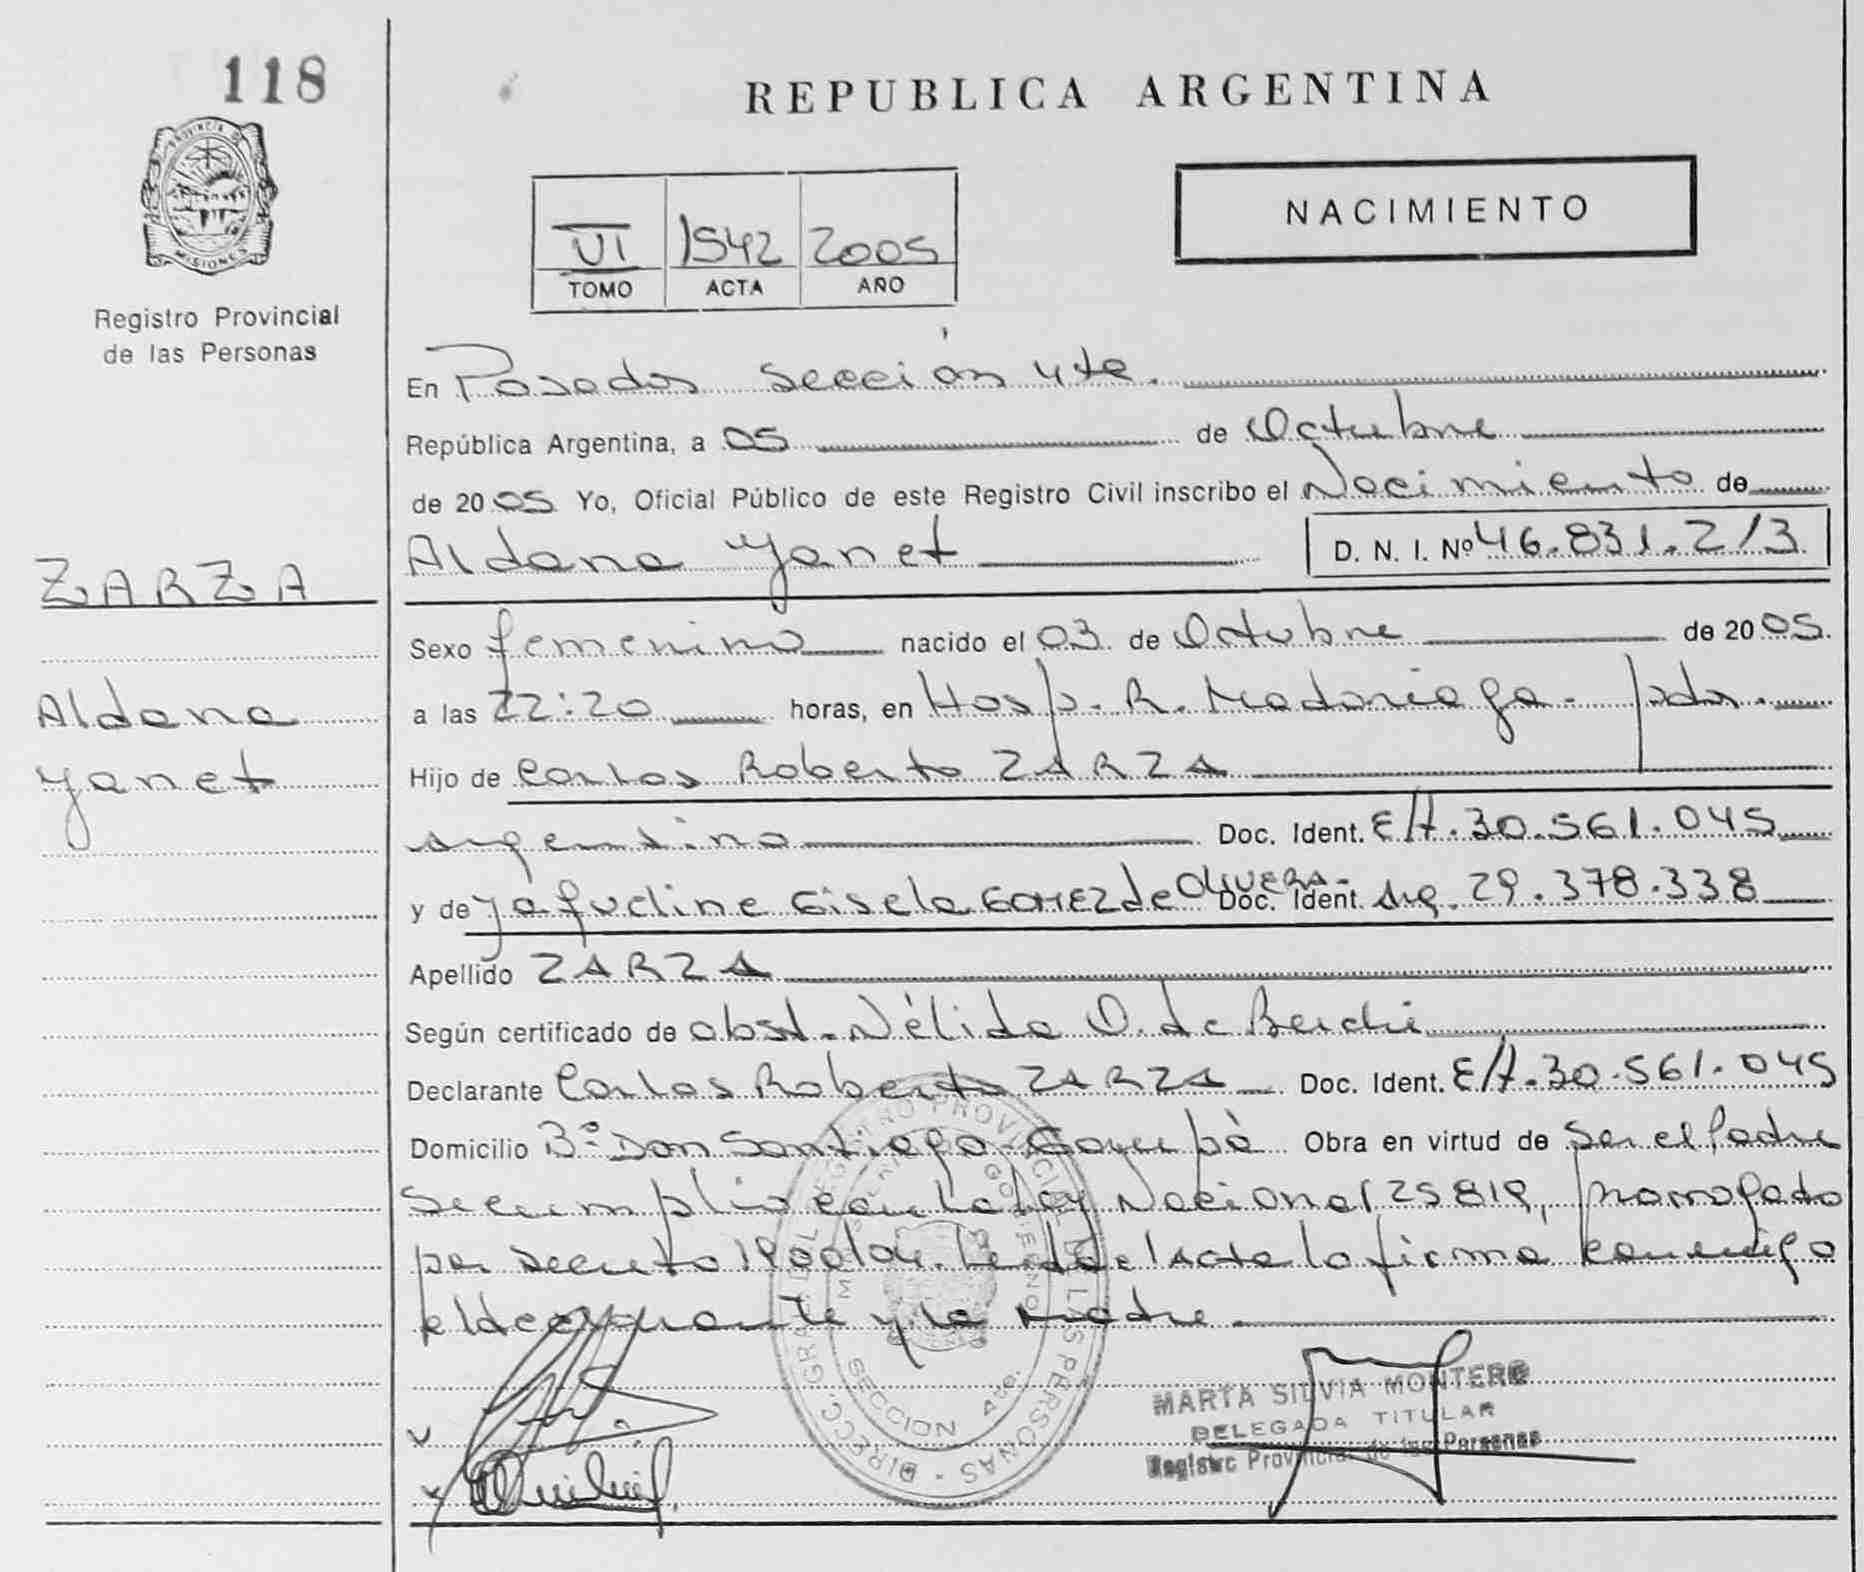 118
PROVINCIA DE
MISIONES
Registro Provincial
de las Personas
REPUBLICA ARGENTINA
VI 1542 2005
TOMO ACTA AÑO
NACIMIENTO
En Posadas sección 4ta.
República Argentina, a 05 de Octubre
de 2005 Yo, Oficial Público de este Registro Civil inscribo el Nacimiento de
Aldana Yanet D. N. I. Nº 46.831.213
ZARZA
Aldana
Yanet
Sexo femenino nacido el 03 de Octubre de 2005.
a las 22:20 horas, en Hosp. R. Madariaga - Pdas.
Hijo de Carlos Roberto ZARZA
argentino Doc. Ident. E/t. 30.561.045
y de Yaqueline Gisela GOMEZ de OLIVERA- Doc. Ident. Arg. 29.378.338
Apellido ZARZA
Según certificado de obst. Nélida O. de
Declarante Carlos Roberto ZARZA Doc. Ident. E/t. 30.561.045
Domicilio Bº Don Santiago - Garupá Obra en virtud de ser el Padre
se cumplió con la ley Nacional 25819, prorrogado
por decreto 1900/04. Leída el Acta la firma conmigo
el declarante y la Madre
DIRECC. GRAL. DEL REGISTRO PROVINCIAL DE LAS PERSONAS
SECCION 4ta.
MARTA SILVIA MONTERO
DELEGADA TITULAR
Registro Provincial de las Personas